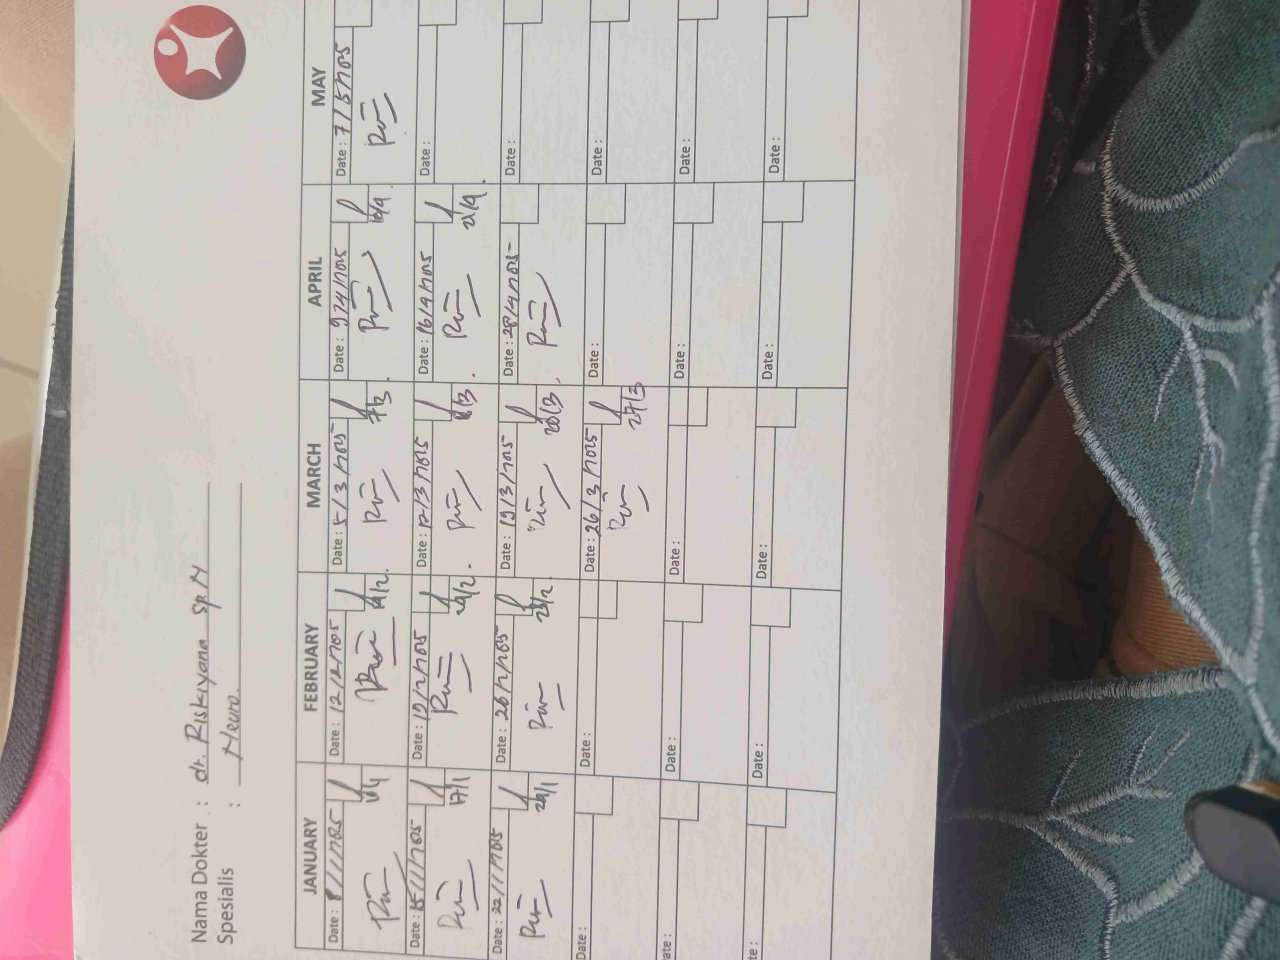 Nama Dokter : dr. Riskiyana Sp N
Spesialis : Neuro
JANUARY FEBRUARY MARCH APRIL MAY
Date : 8/1/2025 Date : 12/2/2025 Date : 5/3/2025 Date : 9/4/2025 Date : 7/5/2025
14/2. 7/3.
Date : 15/1/2025 Date : 19/2/2025 Date : 12/3/2025 Date : 16/4/2025 Date :
17/1 24/2. 21/4.
Date : 22/1/2025 Date : 26/2/2025 Date : 19/3/2025 Date : 28/4/2025 Date :
24/1 28/2. 20/3.
Date : Date : Date : 26/3/2025 Date : Date :
27/3
ate : Date : Date : Date : Date :
te : Date : Date : Date : Date :